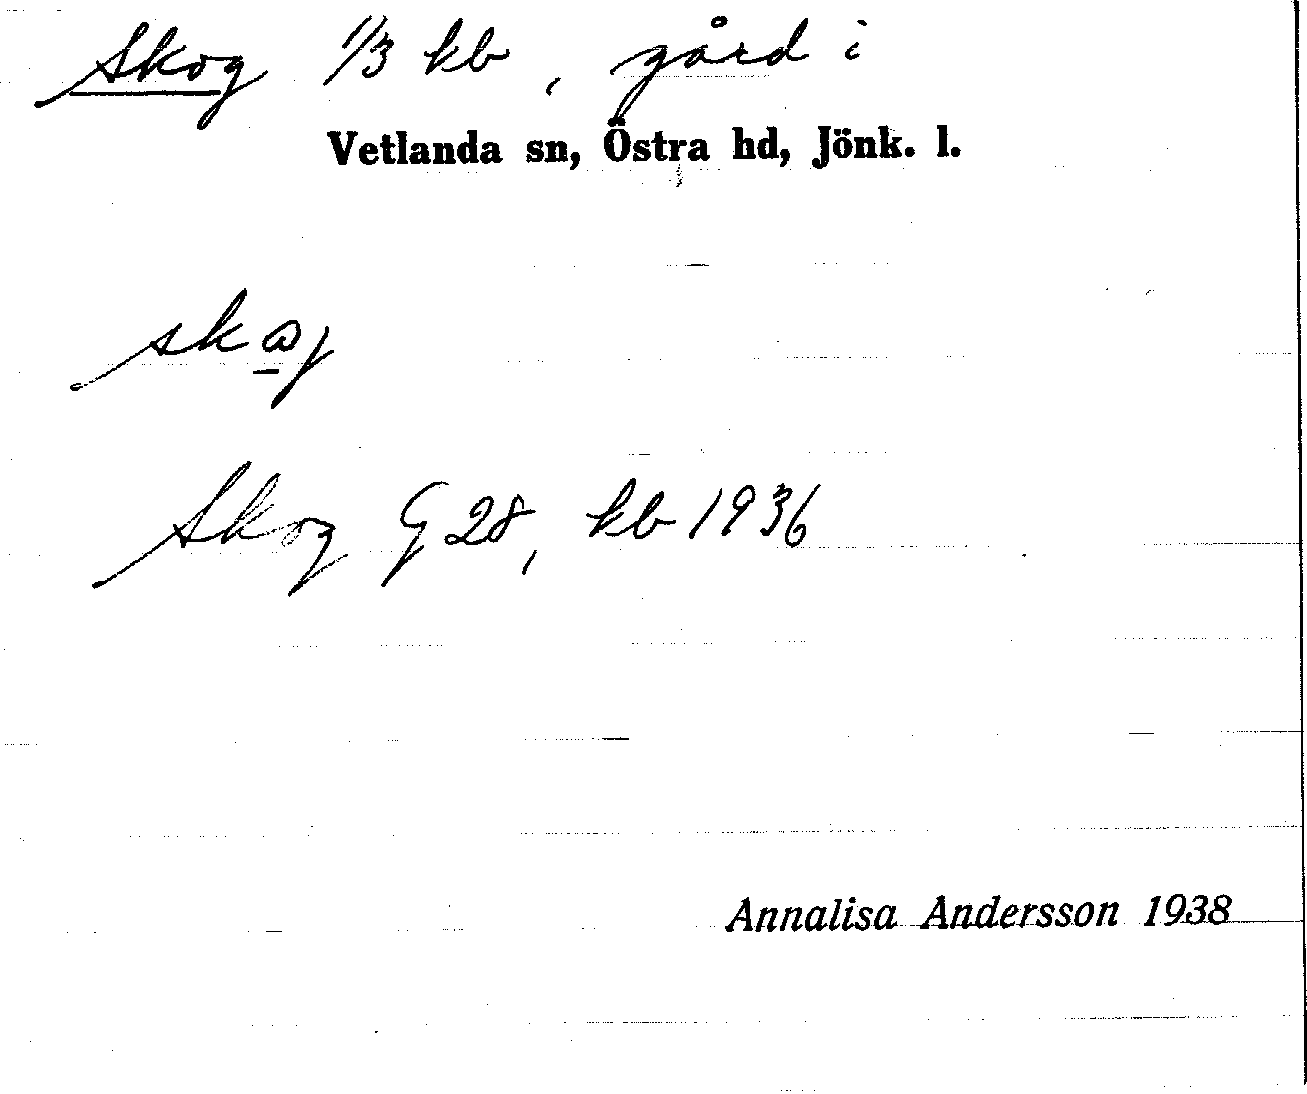 Skog 1/3 kb, gård i
Vetlanda sn, Östra hd, Jönk. l.
Skog G 28, kb 1936
Annalisa Andersson 1938